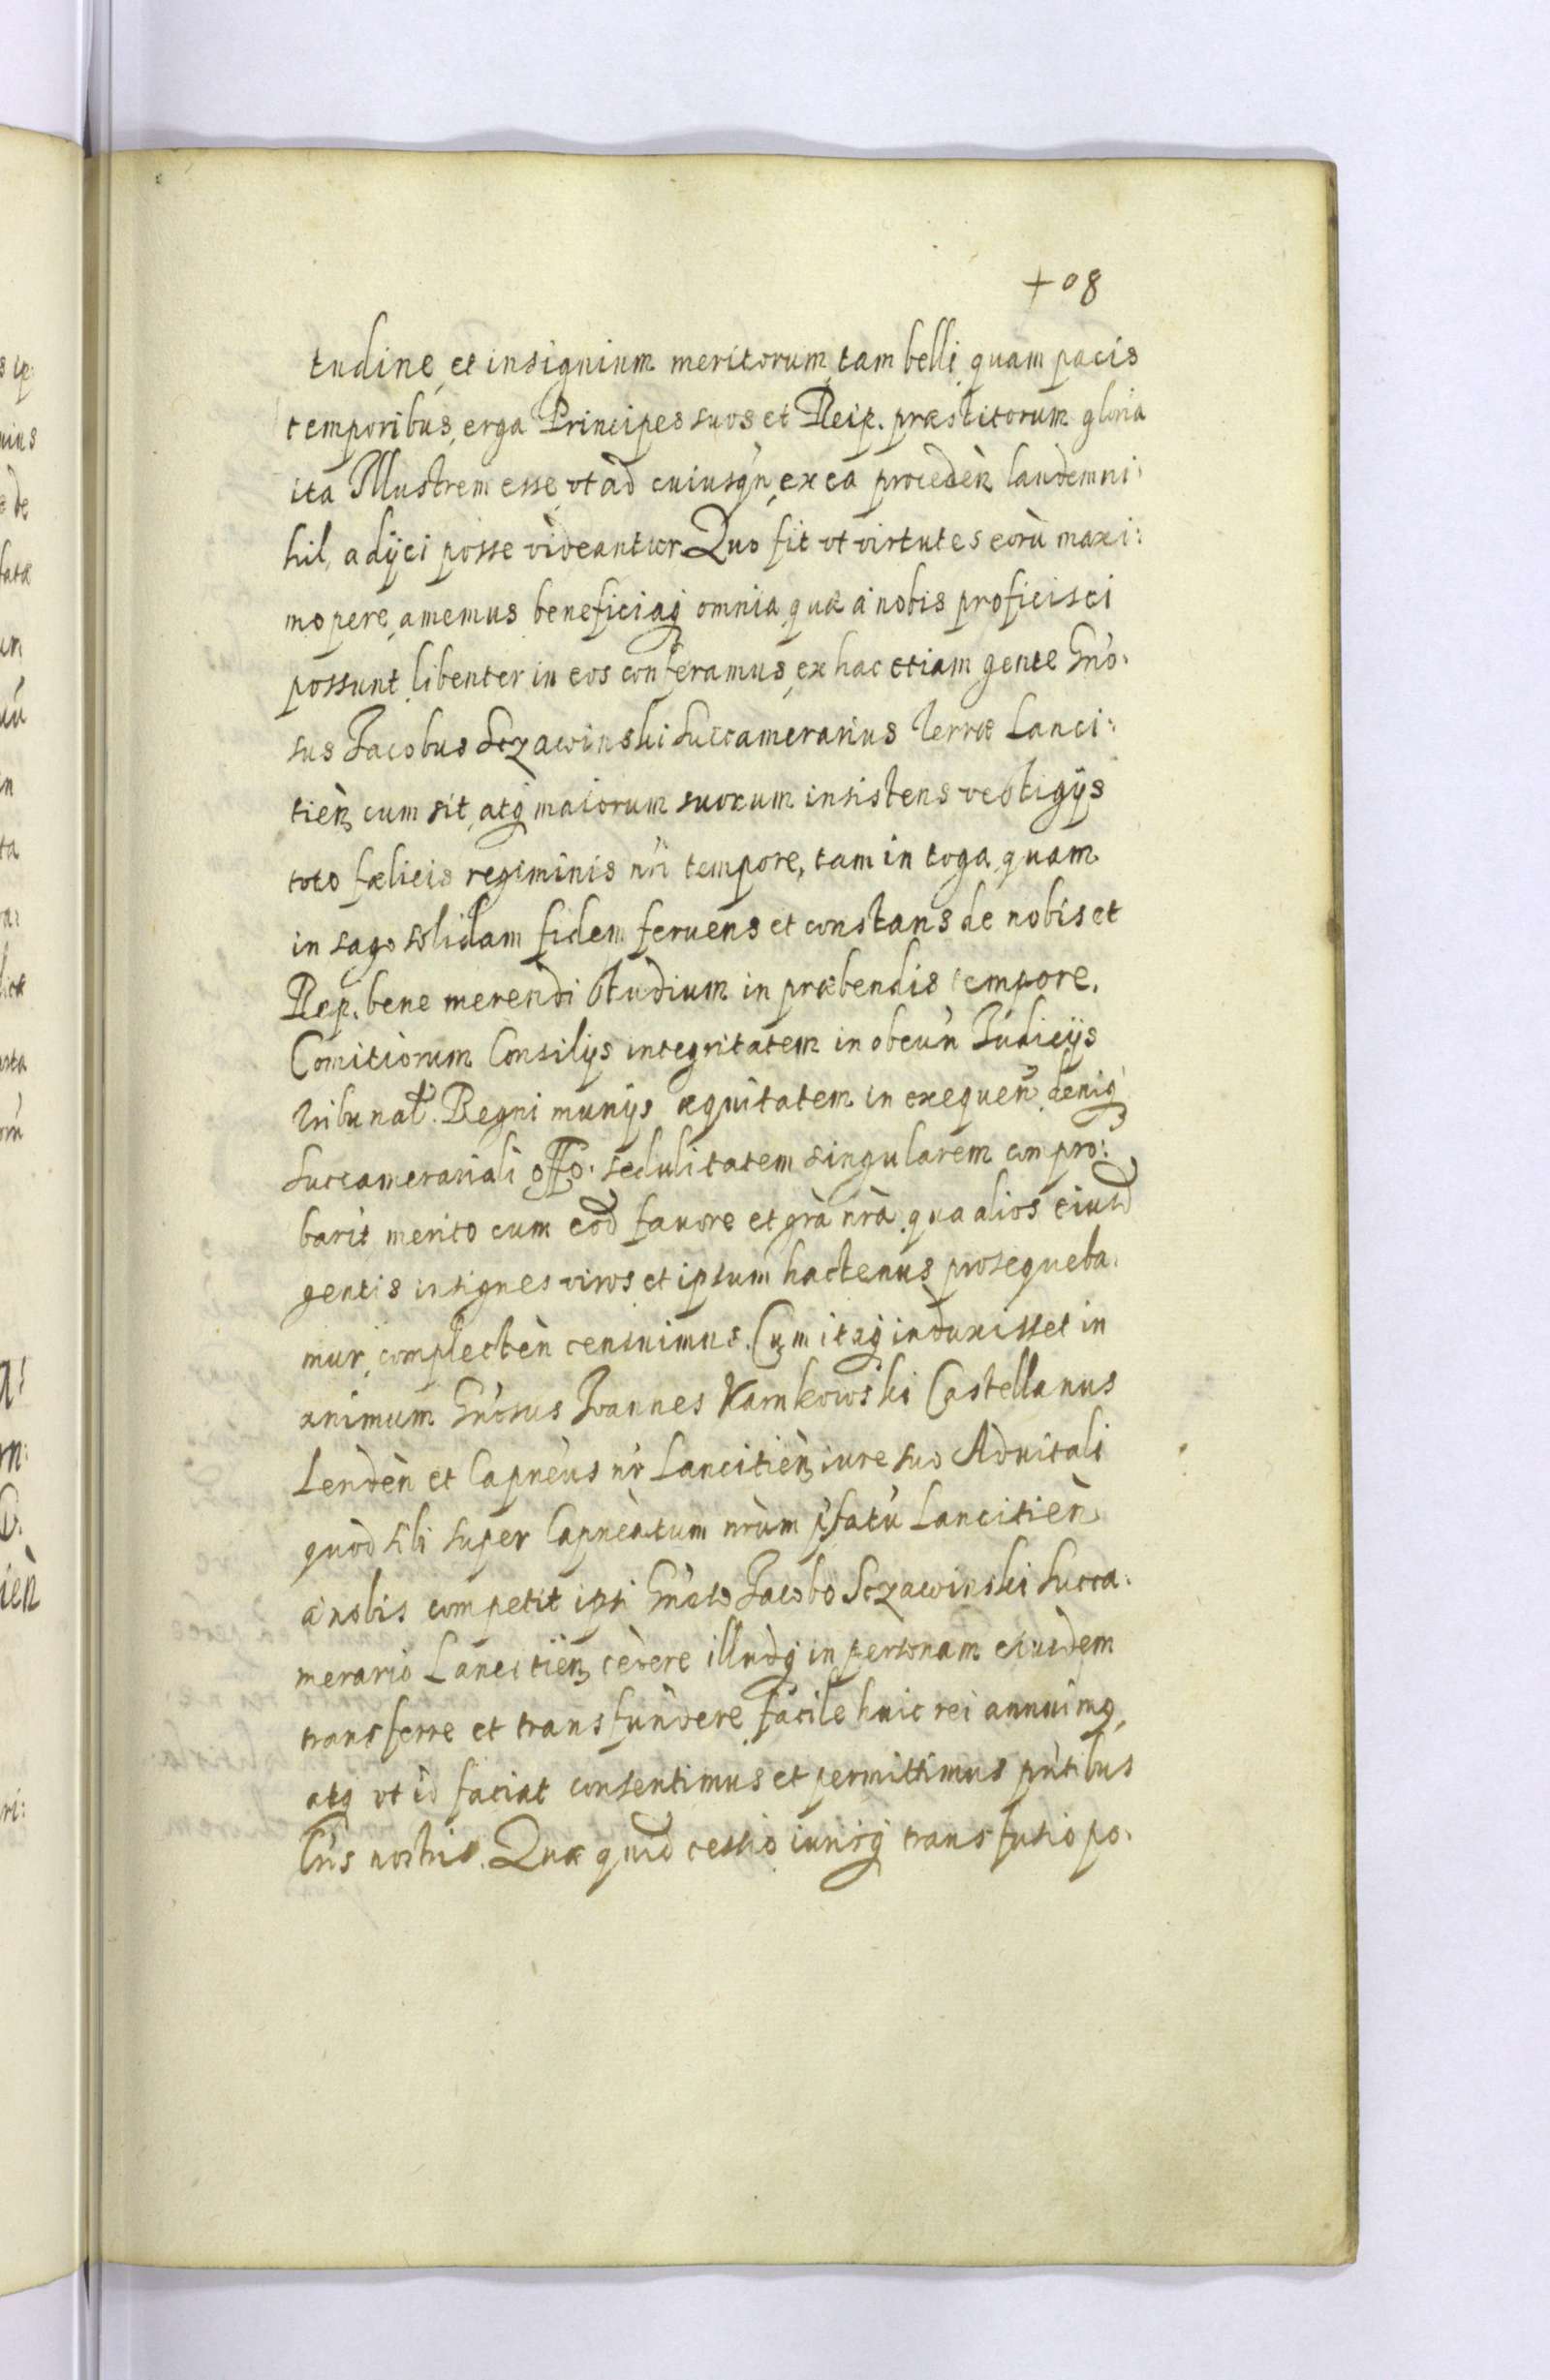 +08
tudine, et insignium meritorum, tam belli quam pacis
temporibus, erga Principes suos et Reip. præstitorum gloria
ita Illustrem esse, vt ad cuiusqn, ex ea proceden laudem ni:
hil, adijci posse videantur. Quo fit vt virtutes eorù maxi:
mopere, amemus beneficiaq omnia, quæ a nobis proficisci
possunt libenter in eos conferamus, ex hac etiam gente Gn̄o:
sus Jacobus Sczawinski Succamerarius Terræ Lanci:
tien, cum sit, atq maiorum suorum insistens vestigijs
toto fælicis regiminis nri tempore, tam in toga, quam
in sago solidam fidem feruens et constans de nobis et
Rep. bene merendi studium in præbendis tempore,
Comitiorum Consilijs integritatem in obeun Judicijs
Tribunal. Regni munijs æquitatem in exequen deniq
succamerariali offo. sedulitatem singularem compro:
barit merito cum eod fauore et gra nra qua alios eiusd
gentis insignes viros et ipsum hactenus prosequeba:
mur, complecten censuimus. Cum itaq induxisset in
animum Gnosus Joannes Karnkowski Castellanus
Lenden et Capneus nr Lancitien, iure suo Aduitali
quod sibi super Capneatum nrum pfatu Lancitien
a nobis competit ipsi Gnoso Jacobo Sczawinski Succa:
merario Lancitien, cedere illudq in personam eiusdem
transferre et transfundere, facile huic rei annuimq,
atq vt id faciat consentimus et permittimus pntibus
Lris nostris. Quæ quid cessio iurisq transfusio po: